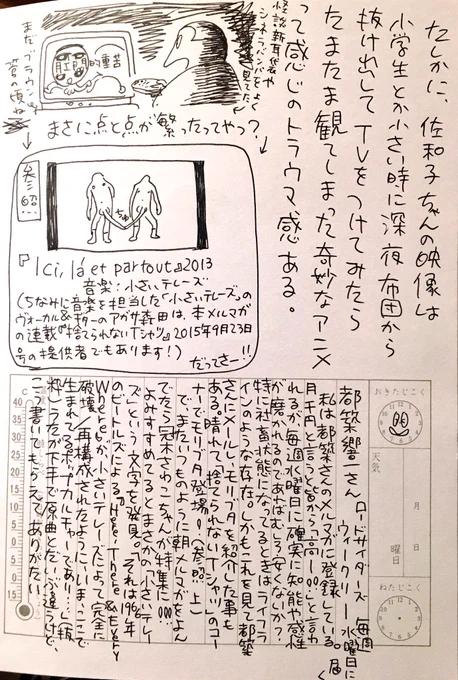 たしかに、佐和子ちゃんの映像は
小学生とか小さい時に深夜布団から
抜け出してTVをつけてみたら
たまたま観てしまった奇妙なアニメ
って感じのトラウマ感ある。
怪談新耳袋や
シネマ
よく
見てた
肛門的重苦
まだブラウン
管の頃ね
まさに点と点が繋ったってやつ？
参照
ちゅ
『Ici, là et partout』2013
音楽：小さいテレーズ
（ちなみに音楽を担当した「小さいテレーズ」の
ヴォーカル&ギターのアガサ森田は、本メルマガ
の連載『捨てられないTシャツ』2015年9月23日
号の提供者でもあります！）
だってさー!!
おきたじこく
天気
月
日
曜日
ねたじこく
℃
40
35
30
25
20
15
10
5
0
5
10
15
都築響一さん ロードサイダーズ
ウィークリー 毎週
水曜日に
届く
私は都築さんのメルマガに登録している。
月千円と言うと皆から「高ー!!○○」と言わ
れるが毎週水曜日に確実に知能や感性
が磨かれるのであればむしろ安くないか？
特に社畜状態になってるときはライフラ
インのような存在。しかもこれを見て都築
さんにメールし、モリブタを紹介した事も
ある。晴れて「捨てられないTシャツ」のコー
ナーでモリブタ登場！（参照。上）
で、またいつものように朝メルマガをよん
でたら冠木さわこちゃんが特集に○○○
よみすすめてるとまさかの「小さいテレー
ズ」という文字を発見○○ 「それは1966年
のビートルズによる『Here, There & Every
Where』が、小さいテレーズによって完全に
破壊／再構成されたように、いま、ここで
生まれてるポップカルチャーであり…」（抜
粋）うた下手で原曲とだいぶ違うけど、
こう書いてもらえてありがたい